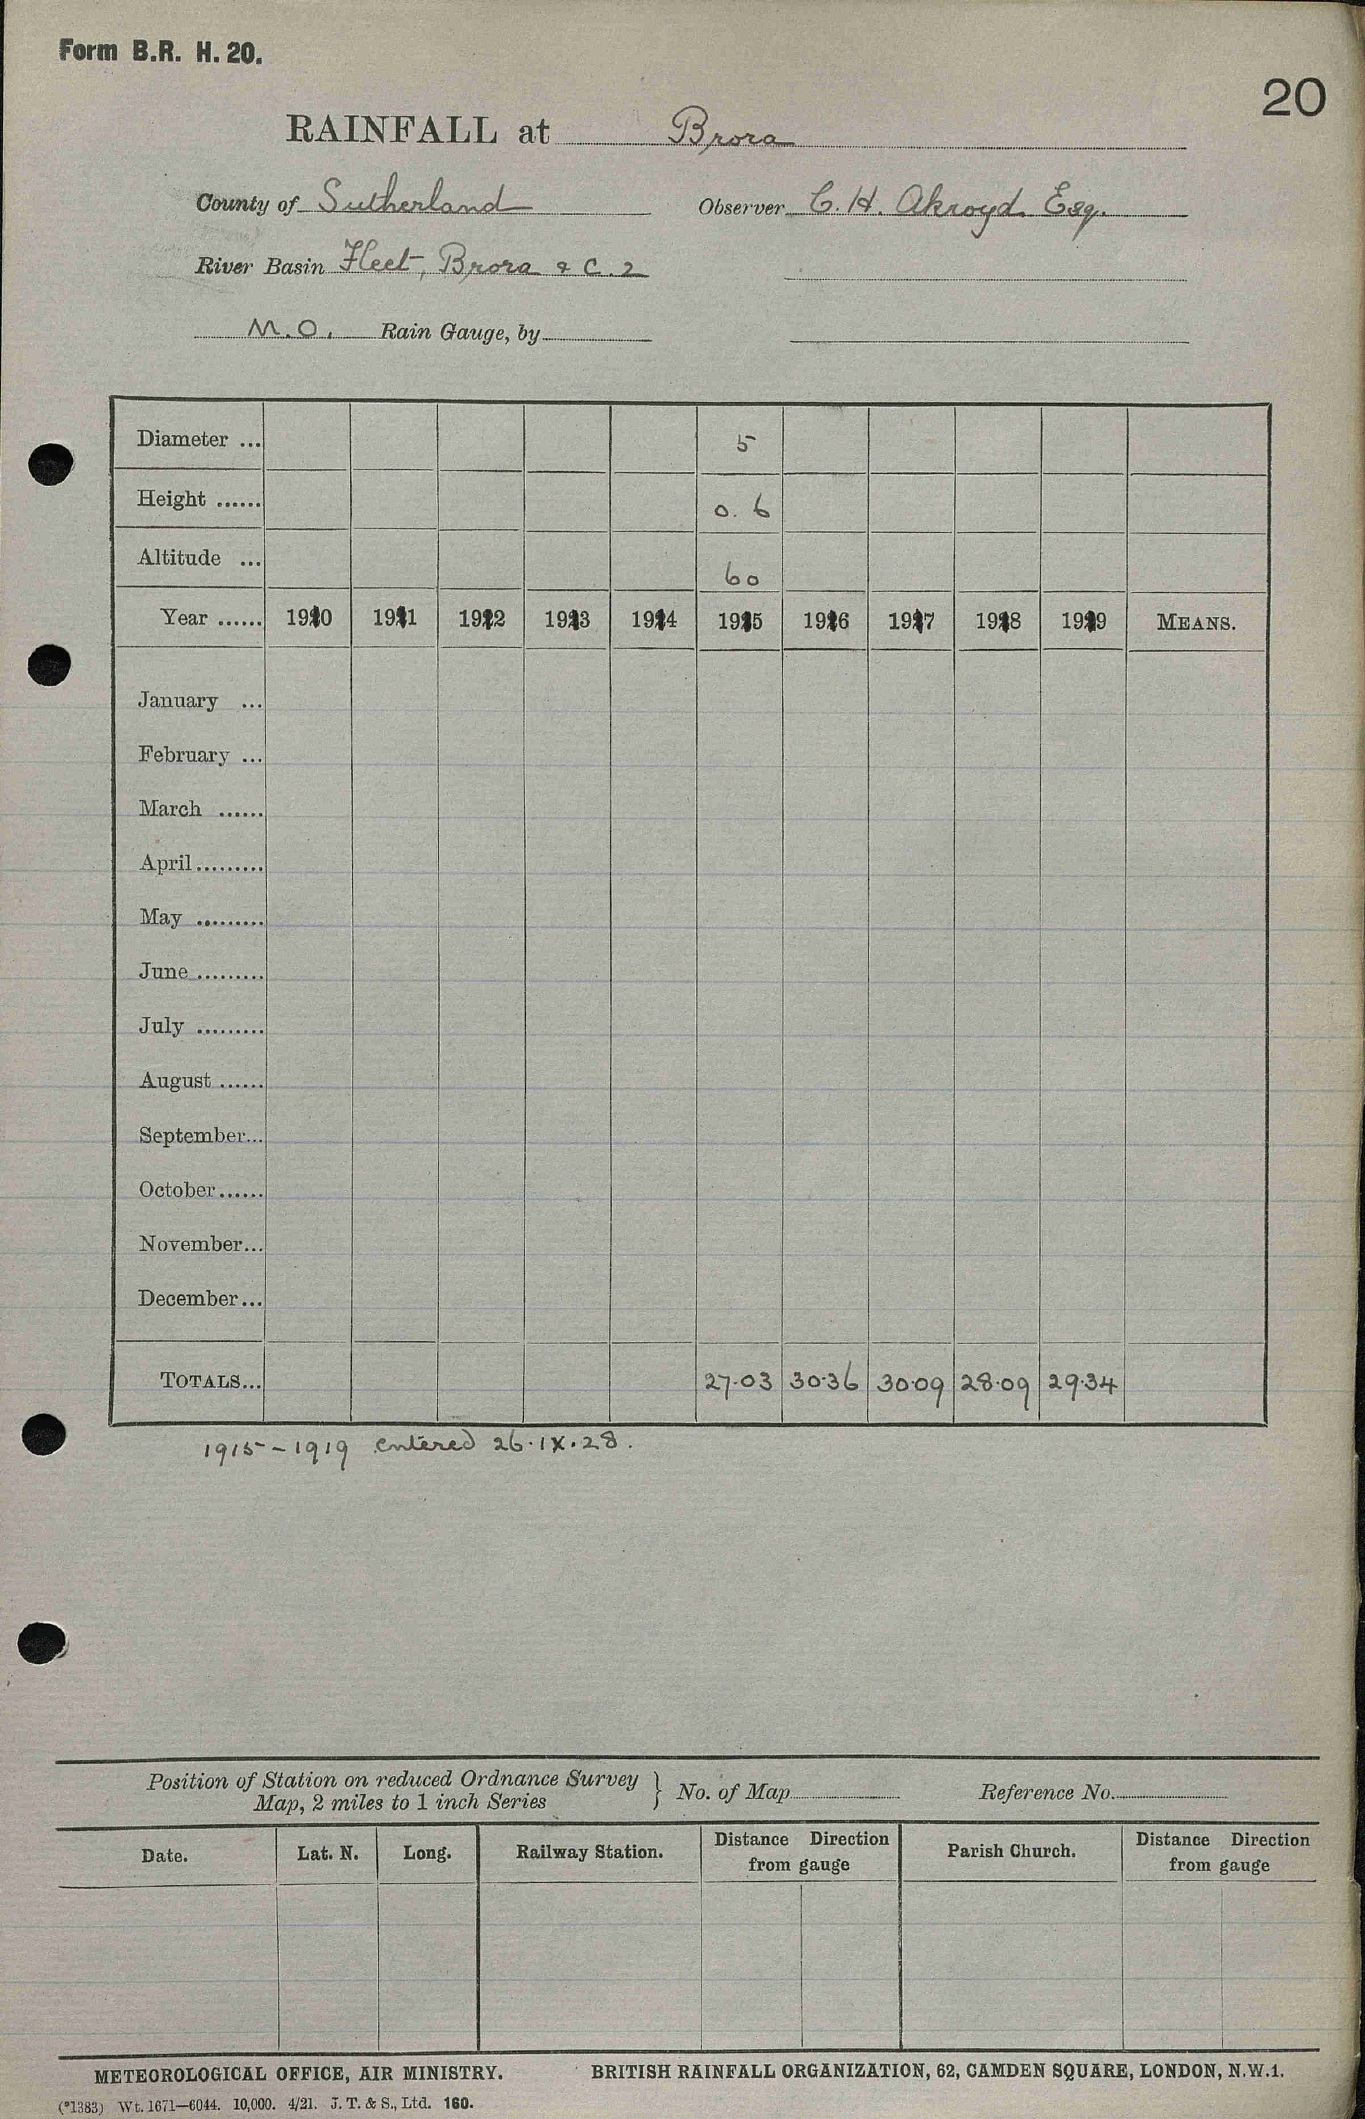 Form B.R. H. 20.
20
RAINFALL at Brora
County of Sutherland Observer C. H. Akroyd Esq.
River Basin Fleet, Brora & C. 2
M.O. Rain Gauge, by
Diameter ... 5
Height ...... 0. 6
Altitude ... 60
Year ...... 1910 1911 1912 1913 1914 1915 1916 1917 1918 1919 MEANS.
January ...
February ...
March ......
April.........
May .........
June .........
July .........
August ......
September...
October......
November...
December...
TOTALS... 27.03 30.36 30.09 28.09 29.34
1915-1919 entered 26.IX.28.
Position of Station on reduced Ordnance Survey
Map, 2 miles to 1 inch Series } No. of Map Reference No.
Date. Lat. N. Long. Railway Station. Distance Direction from gauge Parish Church. Distance Direction from gauge
METEOROLOGICAL OFFICE, AIR MINISTRY. BRITISH RAINFALL ORGANIZATION, 62, CAMDEN SQUARE, LONDON, N.W.1.
(*1383) Wt. 1671—6044. 10,000. 4/21. J. T. & S., Ltd. 160.